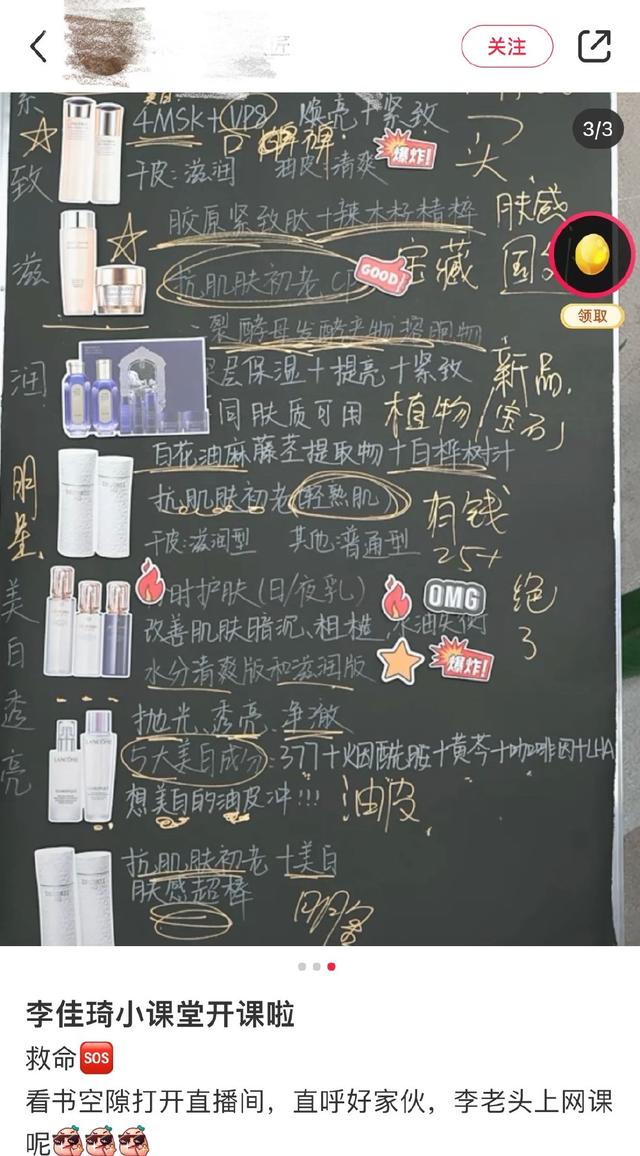 关注
3/3
系
美白
4MSK+VP8 焕亮+紧致
干皮:滋润 油皮:清爽
爆炸!
买
致
胶原紧致肽+辣木籽精粹
肤感
滋
抗肌肤初老CP
GOOD!
宝藏
领取
二裂酵母发酵产物溶胞物
润
层保湿+提亮+紧致
新品
同肤质可用
植物/宝石
白花油麻藤茎提取物+白桦树汁
明星
抗肌肤初老(轻熟肌)
有钱
25+
干皮:滋润型 其他:普通型
美白透亮
时护肤(日/夜乳)
OMG
绝了
改善肌肤暗沉、粗糙、水油失衡
水分清爽版和滋润版
爆炸!
抛光、透亮、净澈
LANCÔME
5大美白成分:377+烟酰胺+黄芩+咖啡因+LHA
想美白的油皮冲!!!
油皮
抗肌肤初老+美白
肤感超棒
李佳琦小课堂开课啦
救命SOS
看书空隙打开直播间，直呼好家伙，李老头上网课
呢